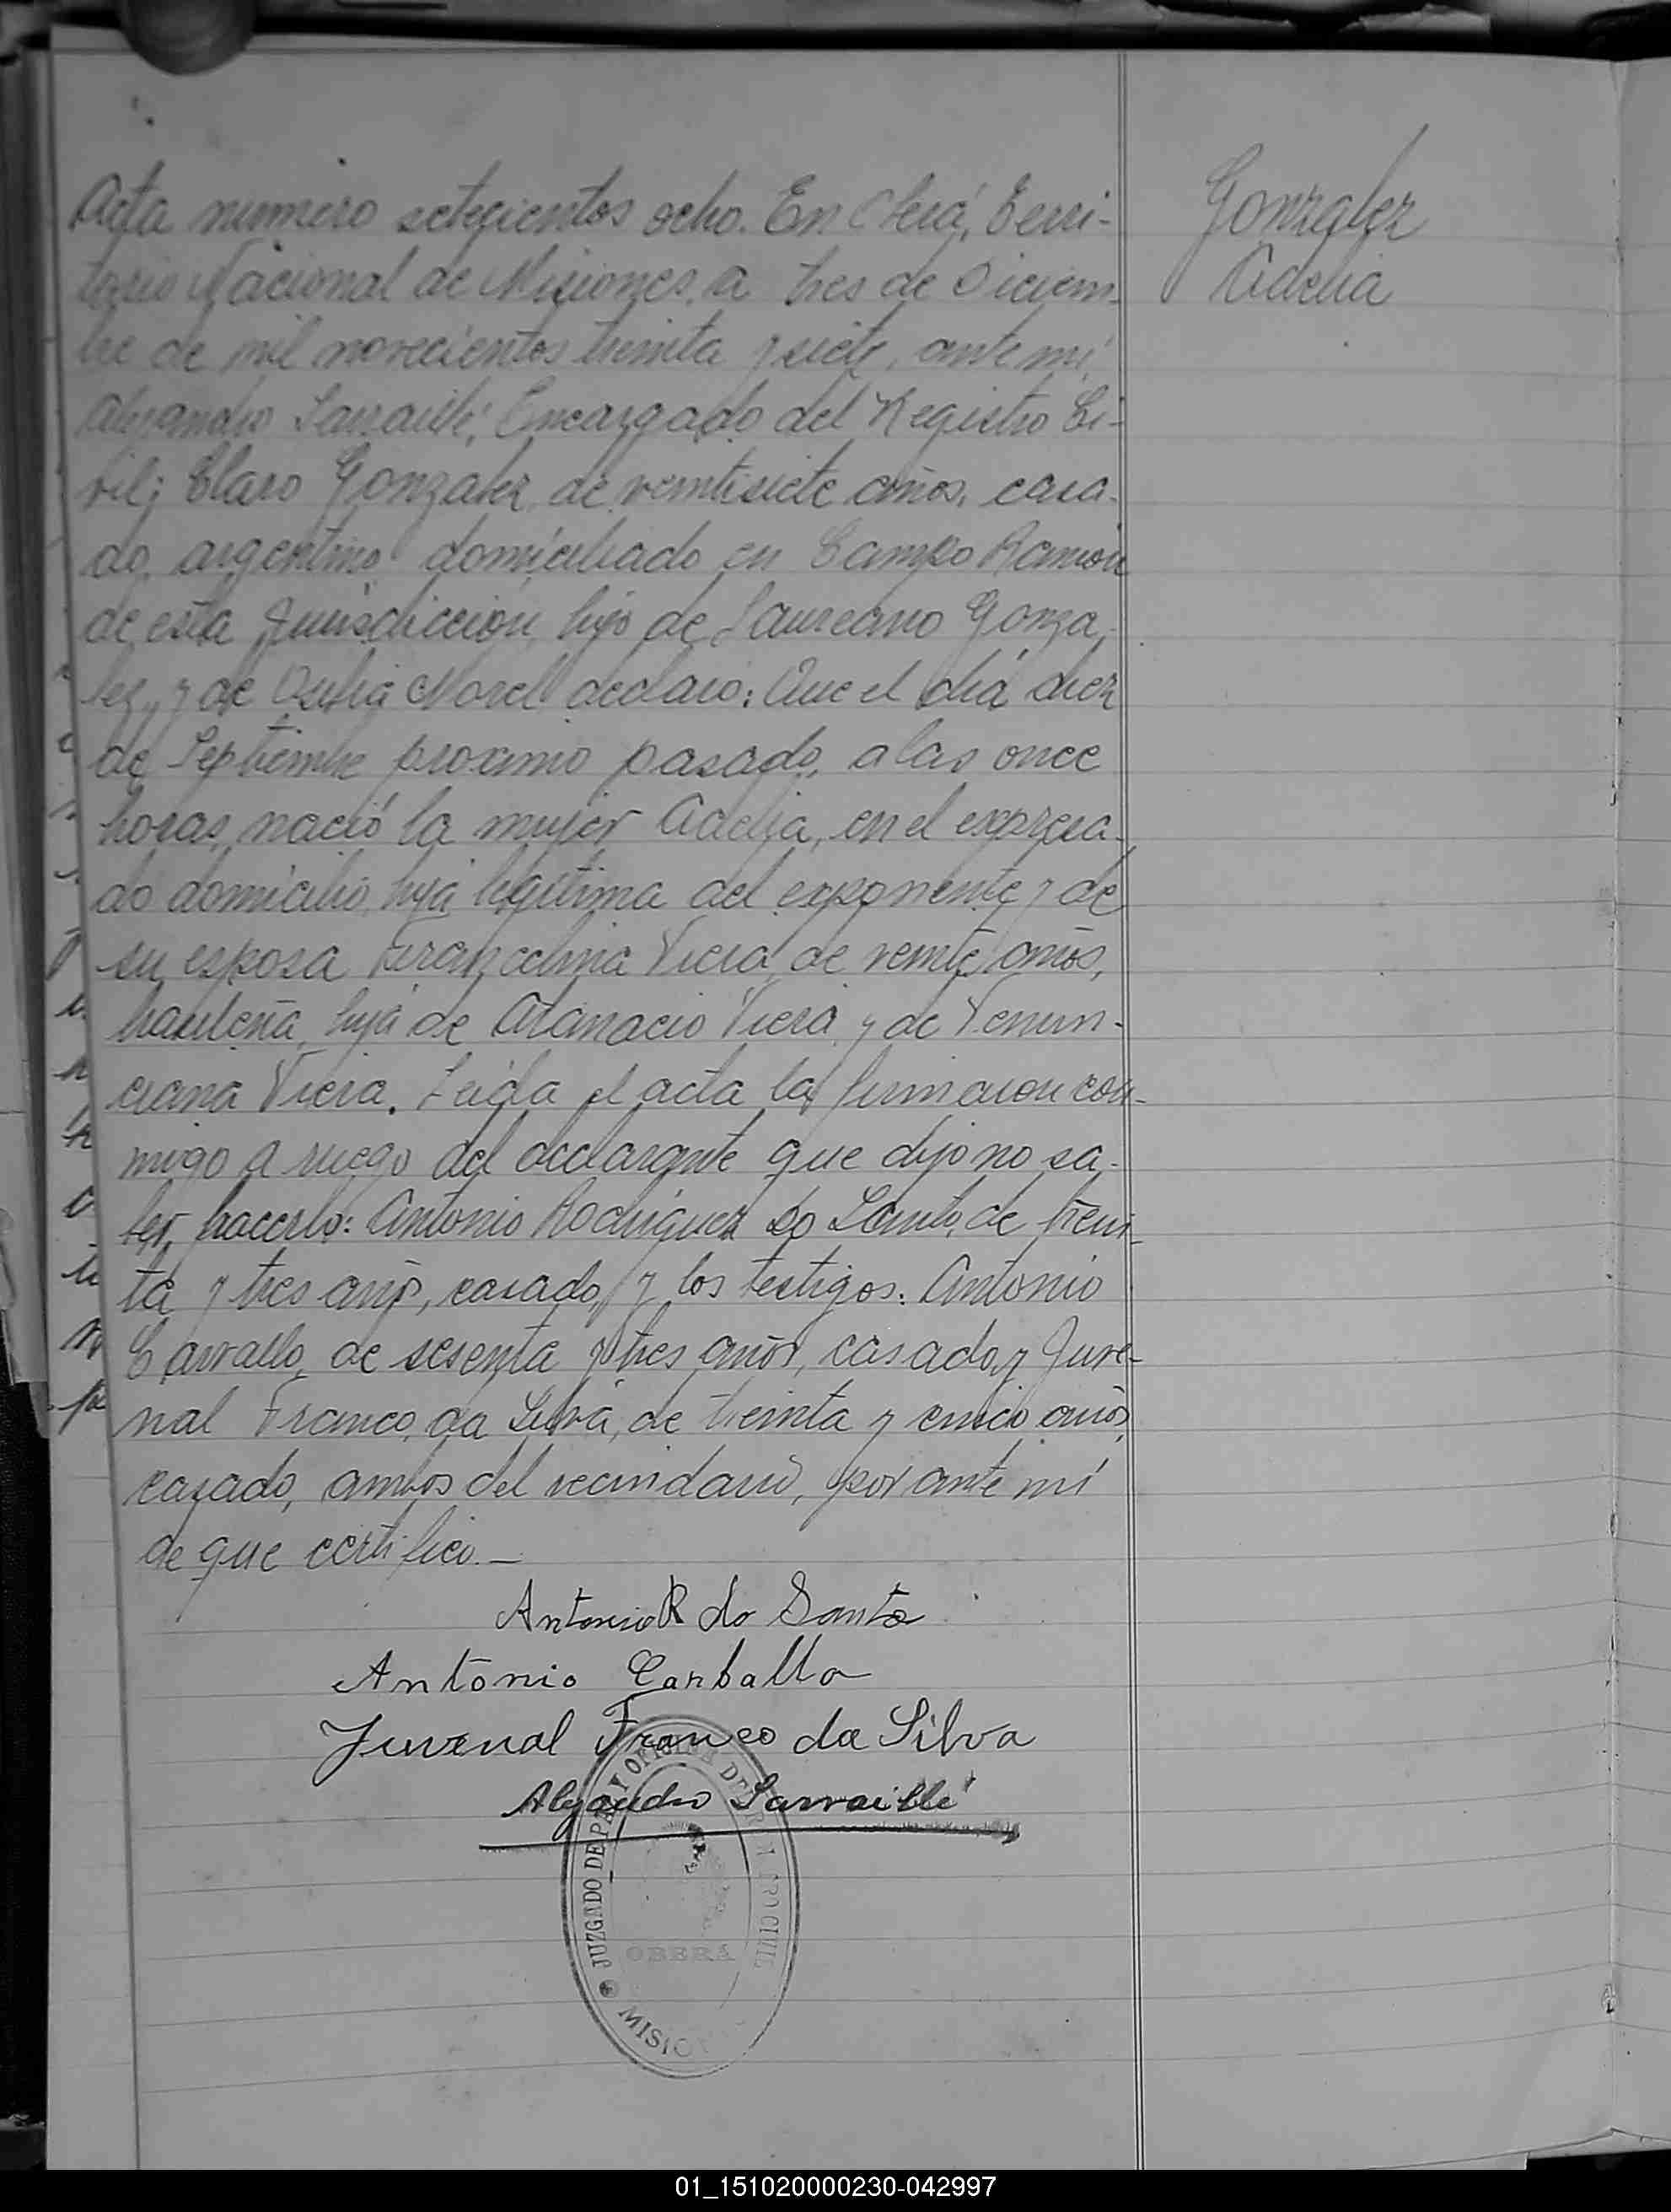 Acta numero setecientos ocho. En Oberá, Terri-
torio Nacional de Misiones, a tres de Diciem-
bre de mil novecientos treinta y siete, ante mí,
Alejandro Sarraillé, Encargado del Registro Ci-
vil; Claro Gonzalez, de veintisiete años, casa-
do, argentino, domiciliado en Campo Ramón
de esta Jurisdicción, hijo de Laureano Gonza-
lez, y de Morel declaró: Que el día diez
de Septiembre proximo pasado, a las once
horas, nació la mujer Adelia, en el expresa-
do domicilio, hija legitima del exponente y de
su esposa Francelina Viera, de veinte años,
brasileña, hija de Atanacio Viera, y de Venun-
ciana Viera. Leída el acta la firmaron con-
migo a ruego del declarante que dijo no sa-
ber hacerlo: Antonio Rodriguez do Santo, de trein-
ta y tres años, casado, y los testigos: Antonio
Carvallo, de sesenta y tres años, casado, y Juve-
nal Franco da Silva, de treinta y cinco años,
casado, ambos del vecindario, por ante mí
de que certifico.—
Antonio R do Santo
Antonio Carballo
Juvenal Franco da Silva
Alejandro Sarraillé
JUZGADO DE PAZ Y OFICINA DE REGISTRO CIVIL
OBERÁ
MISIO
Gonzalez
Adelia
01_151020000230-042997